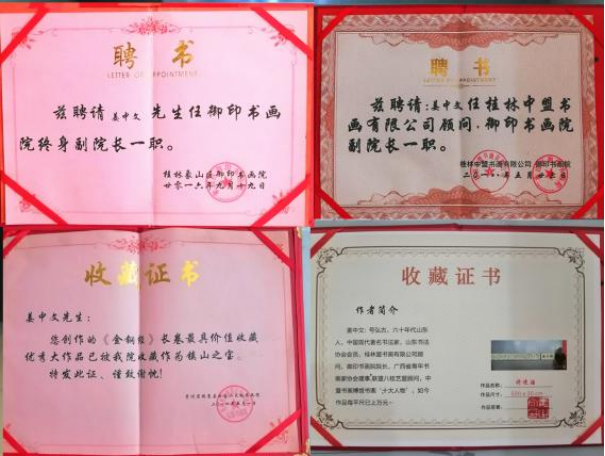 聘 书
LETTER OF APPOINTMENT
兹聘请 姜中文 先生任御印书画
院终身副院长一职。
桂林象山区御印书画院
廿零一六年九月廿九日
聘 书
LETTER OF APPOINTMENT
兹聘请:姜中文任桂林中盟书
画有限公司顾问、御印书画院
副院长一职。
桂林中盟书画有限公司 御印书画院
收藏证书
姜中文先生:
您创作的《金钢经》长卷最具价值收藏
优秀大作品已被我院收藏作为镇山之宝。
特发此证、谨致谢忱!
收藏证书
作者简介
姜中文:号弘古,六十年代山东
人,中国现代著名书法家,山东书法
协会会员,桂林盟书画有限公司顾
问,御印书画院院长,广西省青年书
画家协会理事,联盟八桂艺盟顾问,中
盟书画博览书赛“十大人物”,如今
作品每平尺已上万元…
作品名称:
作品尺寸:
作品编号: